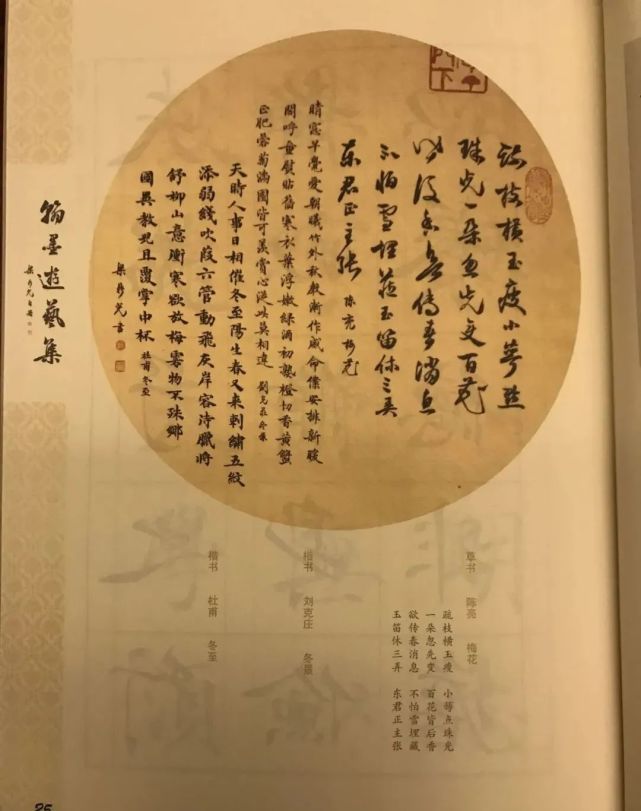 疏枝橫玉瘦小萼點
珠光一朵忽先变百花
皆後香欲傳春消息
不怕雪埋藏玉笛休三弄
东君正主张 陈亮梅花
晴窓早覺愛朝曦竹外秋聲漸作威命僕安排新暖
閣呼童熨貼舊寒衣葉浮嫩緑酒初熟橙切香黄蟹
正肥蓉菊滿園皆可羡賞心從此莫相違 劉克莊冬景
天時人事日相催冬至陽生春又来刺繡五紋
添弱綫吹葭六管動飛灰岸容待臘將
舒柳山意衝寒欲放梅雲物不殊鄉
國異教兒且覆掌中杯 杜甫冬至
翰墨遊藝集
草书 陈亮 梅花
疏枝横玉瘦 小萼点珠光
一朵忽先变 百花皆后香
欲传春消息 不怕雪埋藏
玉笛休三弄 东君正主张
楷书 刘克庄 冬景
楷书 杜甫 冬至
25